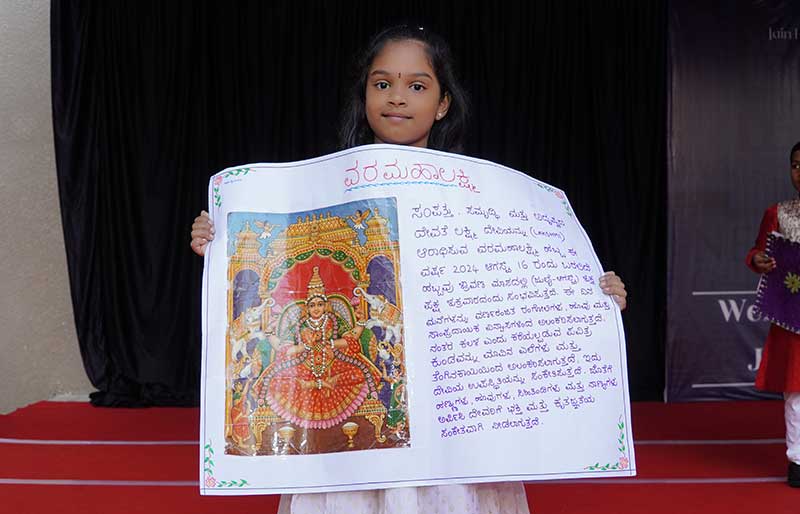 Jain H
ವರಮಹಾಲಕ್ಷ್ಮಿ
ಸಂಪತ್ತು, ಸಮೃದ್ಧಿ ಮತ್ತು ಅದೃಷ್ಟದ
ದೇವತೆ ಲಕ್ಷ್ಮೀ ದೇವಿಯನ್ನು (Lakshmi)
ಆರಾಧಿಸುವ ವರಮಹಾಲಕ್ಷ್ಮಿ ಹಬ್ಬ ಈ
ವರ್ಷ 2024 ಆಗಸ್ಟ್ 16 ರಂದು ಬರಲಿದೆ
ಹಬ್ಬವು ಶ್ರಾವಣ ಮಾಸದಲ್ಲಿ (ಜುಲೈ-ಆಗಸ್ಟ್) ಶುಕ್ಲ
ಪಕ್ಷ ಶುಕ್ರವಾರದಂದು ಸಂಭವಿಸುತ್ತದೆ. ಈ ದಿನ
ಮನೆಗಳನ್ನು ವರ್ಣರಂಜಿತ ರಂಗೋಲಿಗಳು, ಹೂವು ಗಳು
ಸಾಂಪ್ರದಾಯಿಕ ವಿನ್ಯಾಸಗಳಿಂದ ಅಲಂಕರಿಸಲಾಗುತ್ತದೆ.
ನಂತರ ಕಲಶ ಎಂದು ಕರೆಯಲ್ಪಡುವ ಪವಿತ್ರ
ಕುಂಡವನ್ನು ಮಾವಿನ ಎಲೆಗಳು ಮತ್ತು
ತೆಂಗಿನಕಾಯಿಯಿಂದ ಅಲಂಕರಿಸಲಾಗುತ್ತದೆ, ಇದು
ದೇವಿಯ ಉಪಸ್ಥಿತಿಯನ್ನು ಸಂಕೇತಿಸುತ್ತದೆ. ಜೊತೆಗೆ
ಹಣ್ಣುಗಳು, ಹೂವುಗಳು, ಸಿಹಿತಿಂಡಿಗಳು ಮತ್ತು ನಾಣ್ಯಗಳು
ಅರ್ಪಿಸಿ ದೇವರಿಗೆ ಭಕ್ತಿ ಮತ್ತು ಕೃತಜ್ಞತೆಯ
ಸಂಕೇತವಾಗಿ ನೀಡಲಾಗುತ್ತದೆ.
We
J